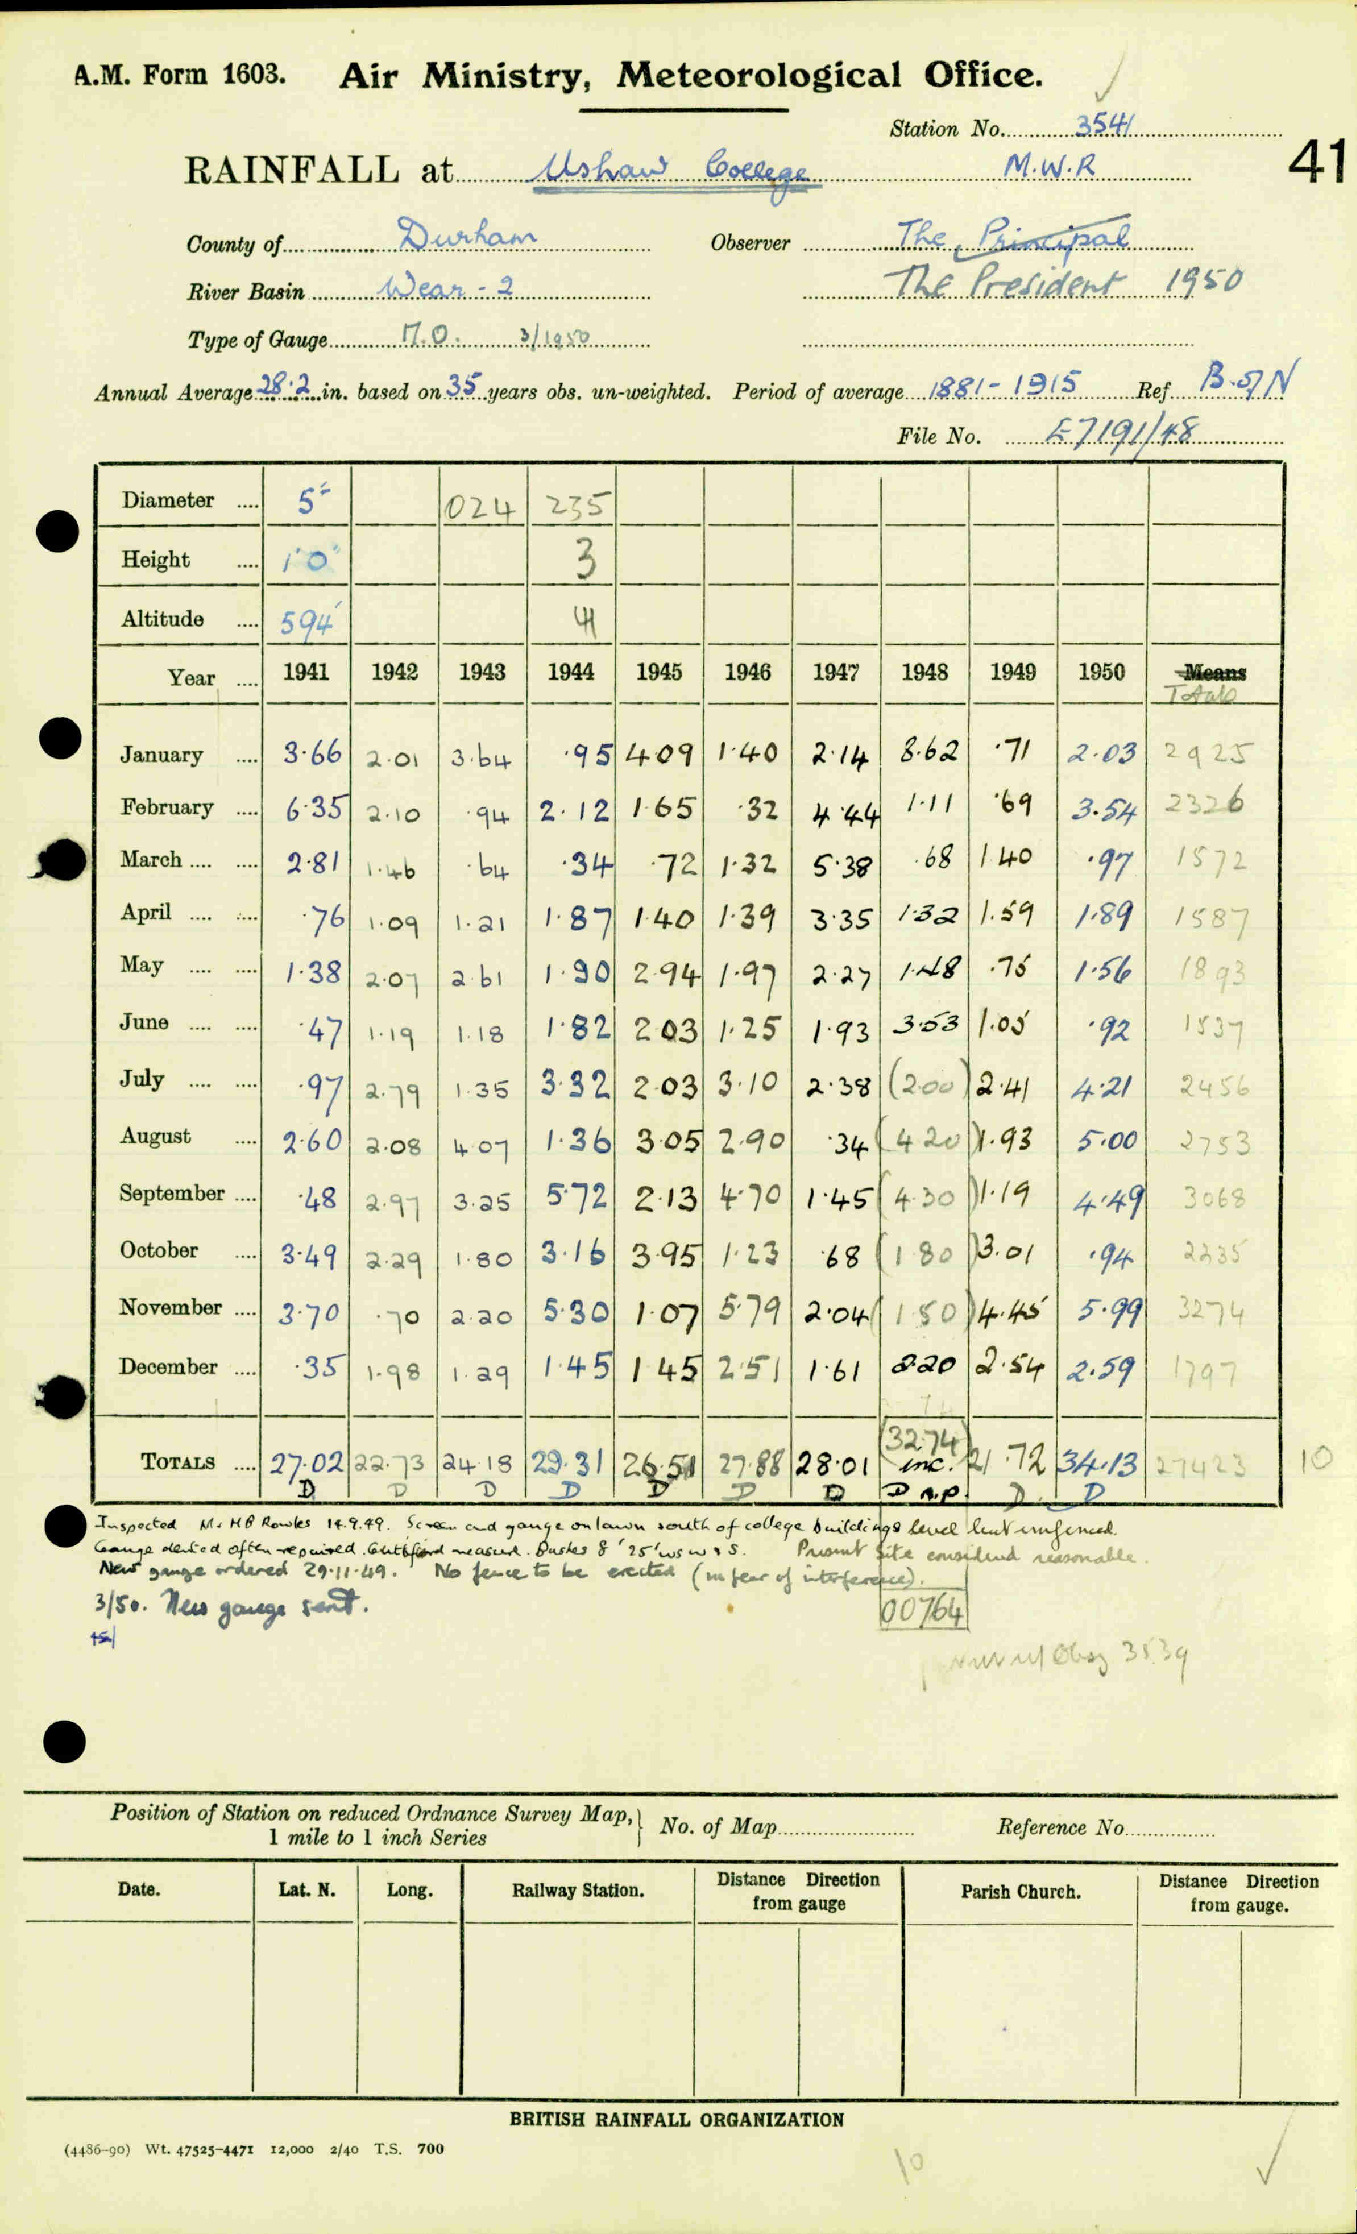 A.M. Form 1603. Air Ministry, Meteorological Office.
Station No. 3541
RAINFALL at Ushaw College M.W.R 41
County of Durham Observer The Principal
River Basin Wear - 2 The President 1950
Type of Gauge M.O. 3/1950
Annual Average 28.2 in. based on 35 years obs. un-weighted. Period of average 1881-1915 Ref B of N
File No. E7191/48
Diameter .... 5" 024 235
Height .... 1'0" 3
Altitude .... 594' 4
Year .... 1941 1942 1943 1944 1945 1946 1947 1948 1949 1950 Means
Totals
January .... 3.66 2.01 3.64 .95 4.09 1.40 2.14 8.62 .71 2.03 2925
February .... 6.35 2.10 .94 2.12 1.65 .32 4.44 1.11 .69 3.54 2326
March .... .... 2.81 1.46 .64 .34 .72 1.32 5.38 .68 1.40 .97 1572
April .... .... .76 1.09 1.21 1.87 1.40 1.39 3.35 1.32 1.59 1.89 1587
May .... .... 1.38 2.07 2.61 1.90 2.94 1.97 2.27 1.48 .75 1.56 1893
June .... .... .47 1.19 1.18 1.82 2.03 1.25 1.93 3.53 1.05 .92 1537
July .... .... .97 2.79 1.35 3.32 2.03 3.10 2.38 (2.00) 2.41 4.21 2456
August .... 2.60 2.08 4.07 1.36 3.05 2.90 .34 (4.20) 1.93 5.00 2753
September .... .48 2.97 3.25 5.72 2.13 4.70 1.45 (4.30) 1.19 4.49 3068
October .... 3.49 2.29 1.80 3.16 3.95 1.23 .68 (1.80) 3.01 .94 2235
November .... 3.70 .70 2.20 5.30 1.07 5.79 2.04 (1.50) 4.45 5.99 3274
December .... .35 1.98 1.29 1.45 1.45 2.51 1.61 2.20 2.54 2.59 1797
TOTALS .... 27.02 22.73 24.18 29.31 26.51 27.88 28.01 (32.74) inc. 21.72 34.13 27423 10
D D D D D D D D n.p. D D
Inspected Mr H B Rowles 14.9.49. Screen and gauge on lawn south of college buildings level but unfenced.
Gauge dented often repaired. measured. Bushes 8' 25' WSW & S. Present site considered reasonable.
New gauge ordered 29.11.49. No fence to be erected (in fear of interference).
3/50. New gauge sent.
00764
3539
Position of Station on reduced Ordnance Survey Map, 1 mile to 1 inch Series No. of Map Reference No.
Date. Lat. N. Long. Railway Station. Distance Direction from gauge Parish Church. Distance Direction from gauge.
BRITISH RAINFALL ORGANIZATION
(4486-90) Wt. 47525-4471 12,000 2/40 T.S. 700
10